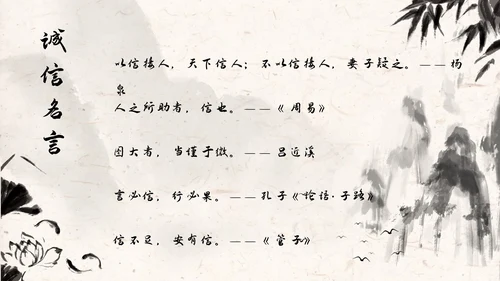 诚信名言
以信接人，天下信人；不以信接人，妻子疑之。——杨
泉
人之所助者，信也。——《周易》
图大者，当谨于微。——吕近溪
言必信，行必果。——孔子《论语·子路》
信不足，安有信。——《管子》